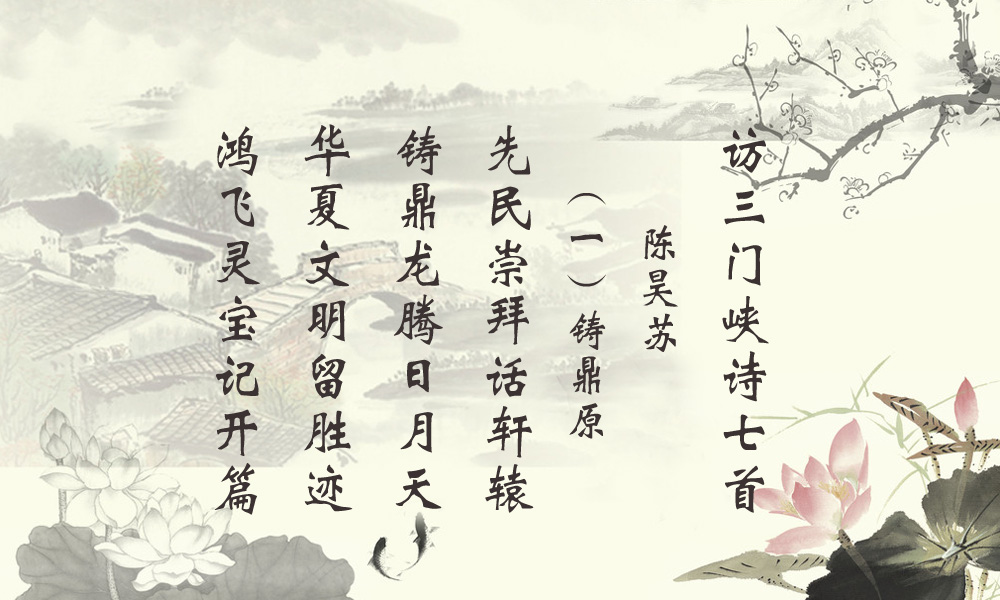 访三门峡诗七首
陈昊苏
（一）铸鼎原
先民崇拜话轩辕
铸鼎龙腾日月天
华夏文明留胜迹
鸿飞灵宝记开篇